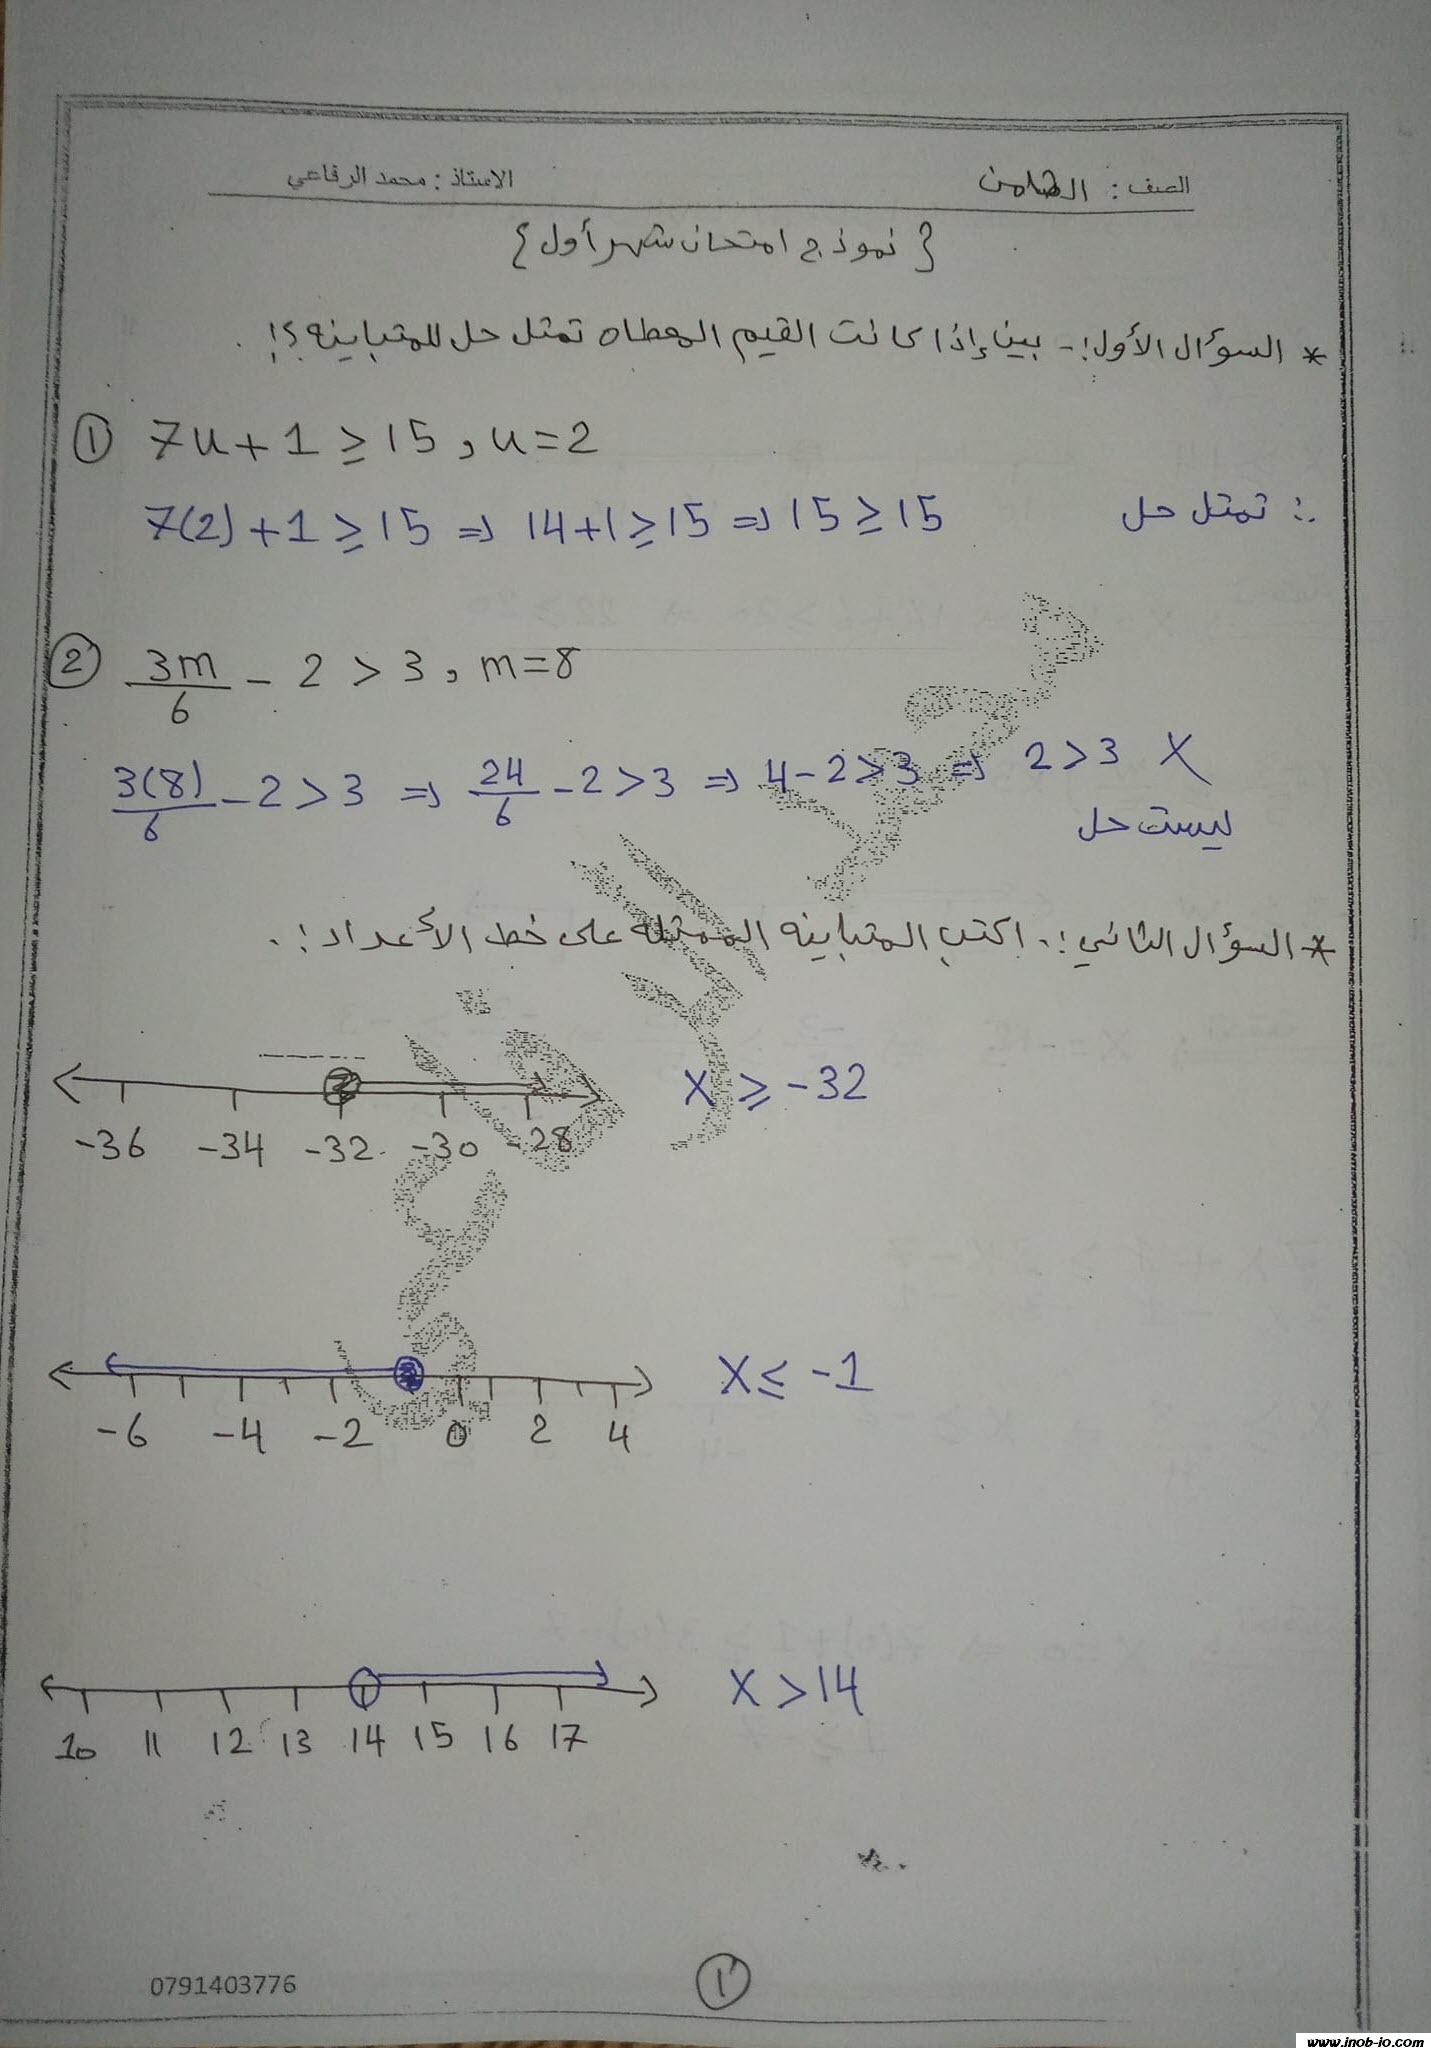 الصف : الثامن الاستاذ : محمد الرفاعي
{ نموذج امتحان شهر أول }
* السؤال الأول :- بين إذا كانت القيم المعطاه تمثل حل للمتباينه ؟! .
① 7u + 1 ≥ 15 , u = 2
7(2) + 1 ≥ 15 ⇒ 14 + 1 ≥ 15 ⇒ 15 ≥ 15 ∴ تمثل حل
② 3m/6 - 2 > 3 , m = 8
3(8)/6 - 2 > 3 ⇒ 24/6 - 2 > 3 ⇒ 4 - 2 > 3 ⇒ 2 > 3 X
ليست حل
* السؤال الثاني :. اكتب المتباينه الممثله على خط الأعداد :.
x ≥ -32
-36 -34 -32 -30 -28
x ≤ -1
-6 -4 -2 0 2 4
x > 14
10 11 12 13 14 15 16 17
محمد الرفاعي
0791403776
①
www.jnob-jo.com